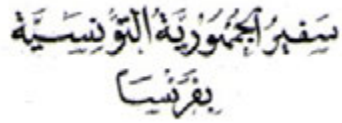 سَفِيرُ الجُمْهُورِيَّةِ التُّونِسِيَّةِ
بِفَرَنْسَا